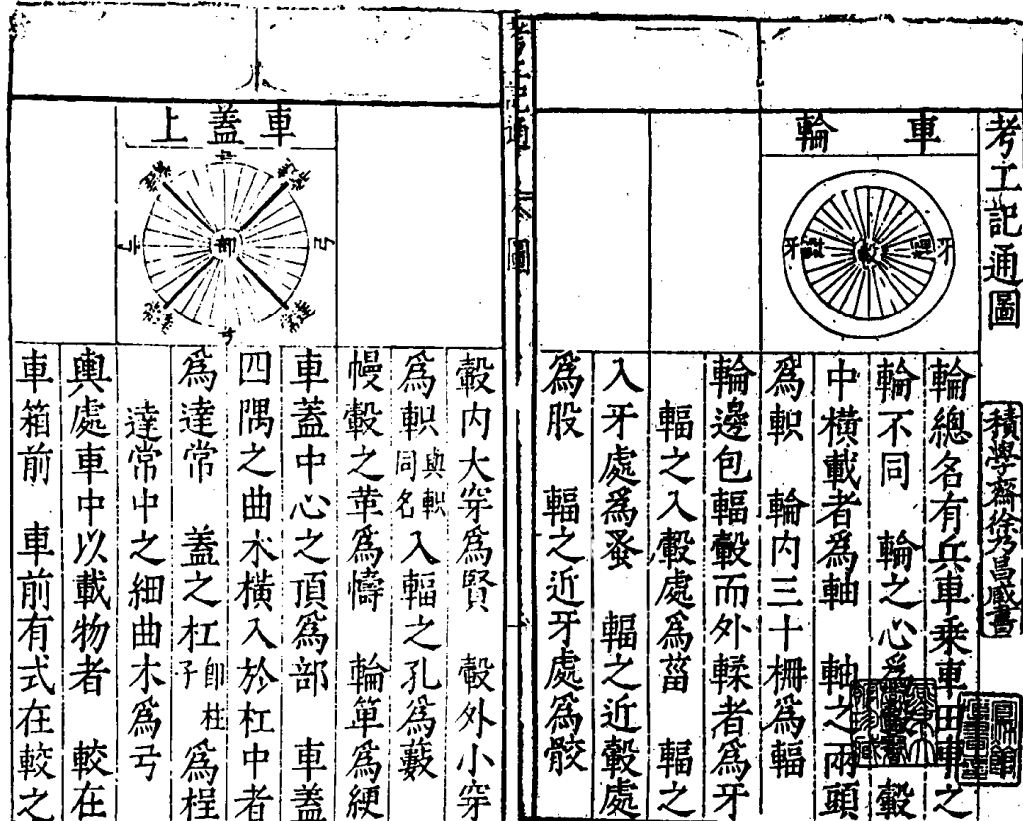 考工記通圖
積學齋徐乃昌藏書
車輪
牙
輻
轂
輻
牙
輪總名有兵車乗車田車之
輪不同　輪之心爲轂
中橫載者爲軸　軸之兩頭
爲軹　輪内三十柵爲輻
輪邊包輻轂而外輮者爲牙
輻之入轂處爲菑　輻之
入牙處爲蚤　輻之近轂處
爲股　輻之近牙處爲骹
考工記通
圖
車蓋上
部
弓
轂内大穿爲賢　轂外小穿
爲軹與軹同名入輻之孔爲藪
幔轂之革爲幬　輪箄爲綆
車蓋中心之頂爲部　車蓋
四隅之曲木橫入於杠中者
爲達常　蓋之杠卽柱子爲桯
達常中之細曲木爲弓
輿處車中以載物者　較在
車箱前　車前有式在較之